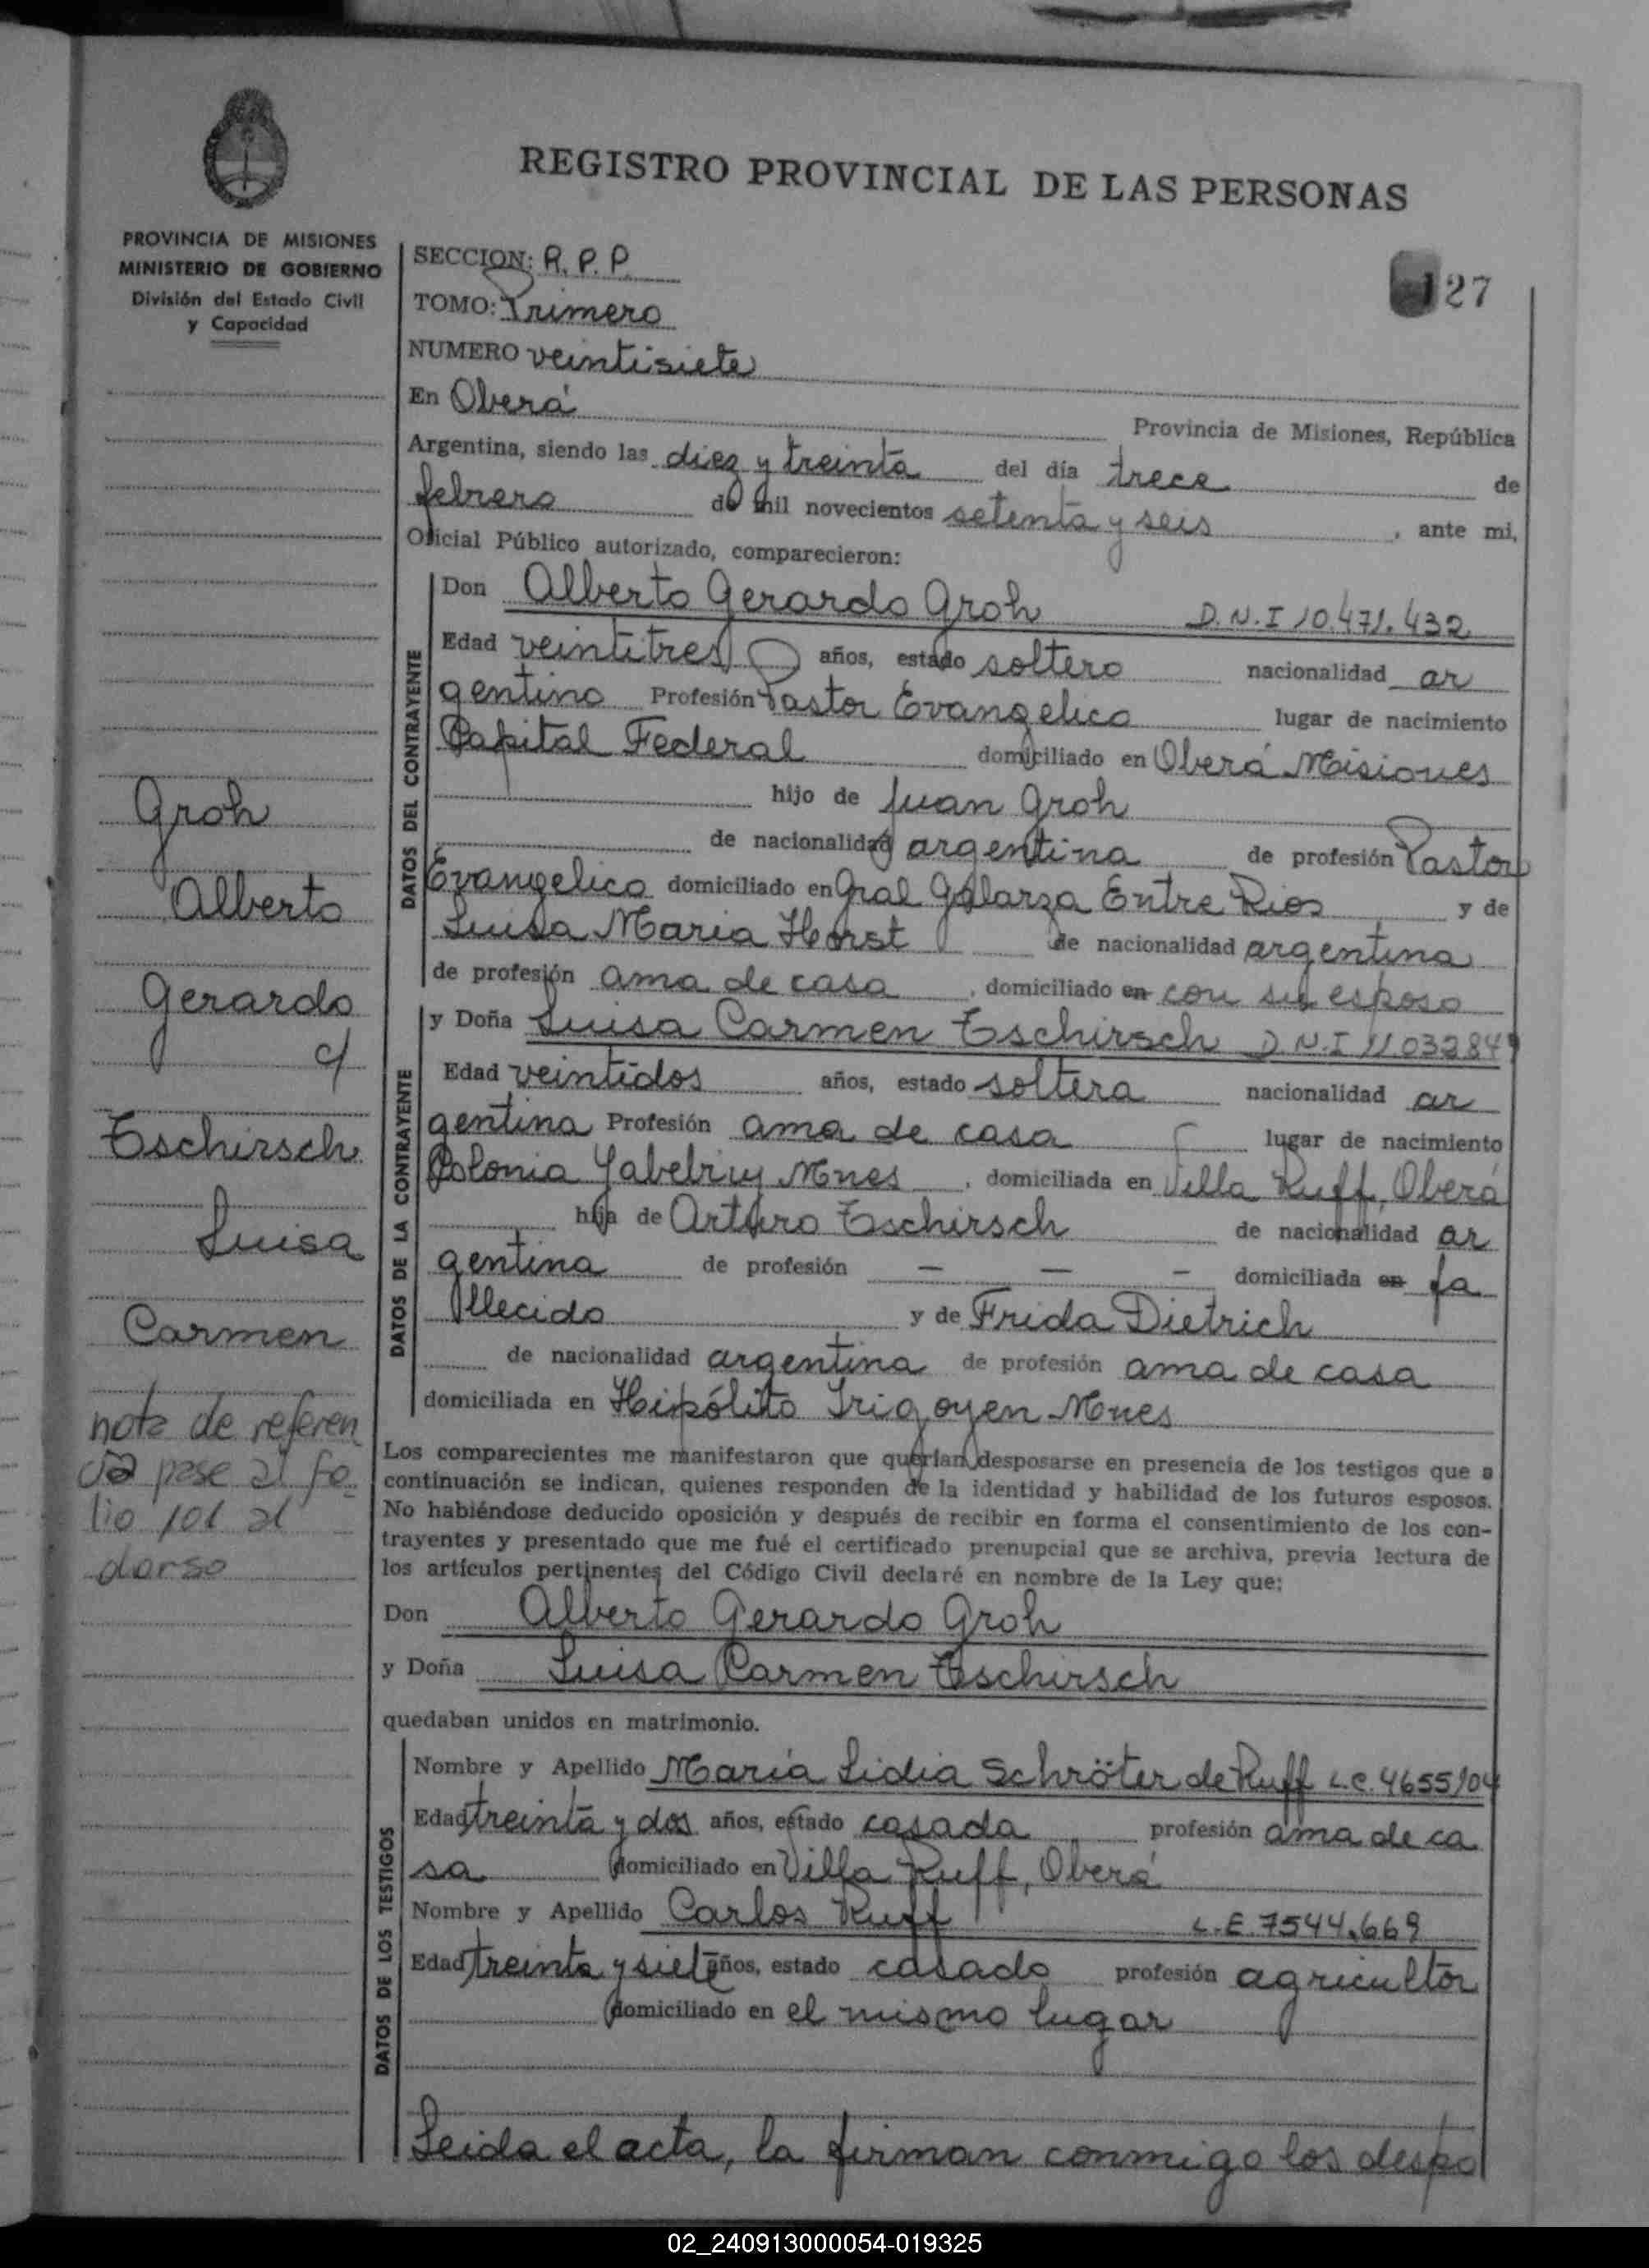 REGISTRO PROVINCIAL DE LAS PERSONAS
PROVINCIA DE MISIONES
MINISTERIO DE GOBIERNO
División del Estado Civil
y Capacidad
127
SECCION: R. P. P.
TOMO: Primero
NUMERO veintisiete
En Oberá Provincia de Misiones, República
Argentina, siendo las diez y treinta del día trece de
febrero de mil novecientos setenta y seis, ante mi,
Oficial Público autorizado, comparecieron:
DATOS DEL CONTRAYENTE
Don Alberto Gerardo Groh D.N.I 10.471.432
Edad veintitres años, estado soltero nacionalidad ar
gentino Profesión Pastor Evangelico lugar de nacimiento
Capital Federal domiciliado en Oberá Misiones
hijo de Juan Groh
de nacionalidad argentina de profesión Pastor
Evangelico domiciliado en Gral Galarza Entre Rios y de
Luisa Maria Horst de nacionalidad argentina
de profesión ama de casa, domiciliado en con su esposo
DATOS DE LA CONTRAYENTE
y Doña Luisa Carmen Tschirsch D.N.I 11032849
Edad veintidos años, estado soltera nacionalidad ar
gentina Profesión ama de casa lugar de nacimiento
Colonia Yabebiry Mnes, domiciliada en Villa Ruff, Oberá
hija de Arturo Tschirsch de nacionalidad ar
gentina de profesión — — — domiciliada en fa
llecido y de Frida Dietrich
de nacionalidad argentina de profesión ama de casa
domiciliada en Hipólito Irigoyen Mnes
Los comparecientes me manifestaron que querían desposarse en presencia de los testigos que a
continuación se indican, quienes responden de la identidad y habilidad de los futuros esposos.
No habiéndose deducido oposición y después de recibir en forma el consentimiento de los con-
trayentes y presentado que me fué el certificado prenupcial que se archiva, previa lectura de
los artículos pertinentes del Código Civil declaré en nombre de la Ley que:
Don Alberto Gerardo Groh
y Doña Luisa Carmen Tschirsch
quedaban unidos en matrimonio.
DATOS DE LOS TESTIGOS
Nombre y Apellido María Lidia Schröter de Ruff L.C. 4655104
Edad treinta y dos años, estado casada profesión ama de ca
sa domiciliado en Villa Ruff, Oberá
Nombre y Apellido Carlos Ruff L.E. 7544.669
Edad treinta y siete años, estado casado profesión agricultor
domiciliado en el mismo lugar
Leida el acta, la firman conmigo los despo
Groh
Alberto
Gerardo
c/
Tschirsch
Luisa
Carmen
nota de referen
cia pase al fo
lio 101 al
dorso
02_240913000054-019325